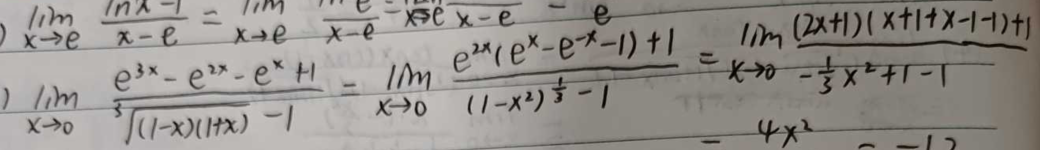 ) lim x→e (lnx-1)/(x-e) = lim x→e /(x-e) = /(x-e) = e
) lim x→0 (e^{3x} - e^{2x} - e^x + 1)/(∛((1-x)(1+x)) - 1) = lim x→0 (e^{2x}(e^x - e^{-x} - 1) + 1)/((1-x²)^{1/3} - 1) = lim x→0 ((2x+1)(x+1+x-1-1)+1)/(-1/3 x² + 1 - 1)
= 4x² = -12